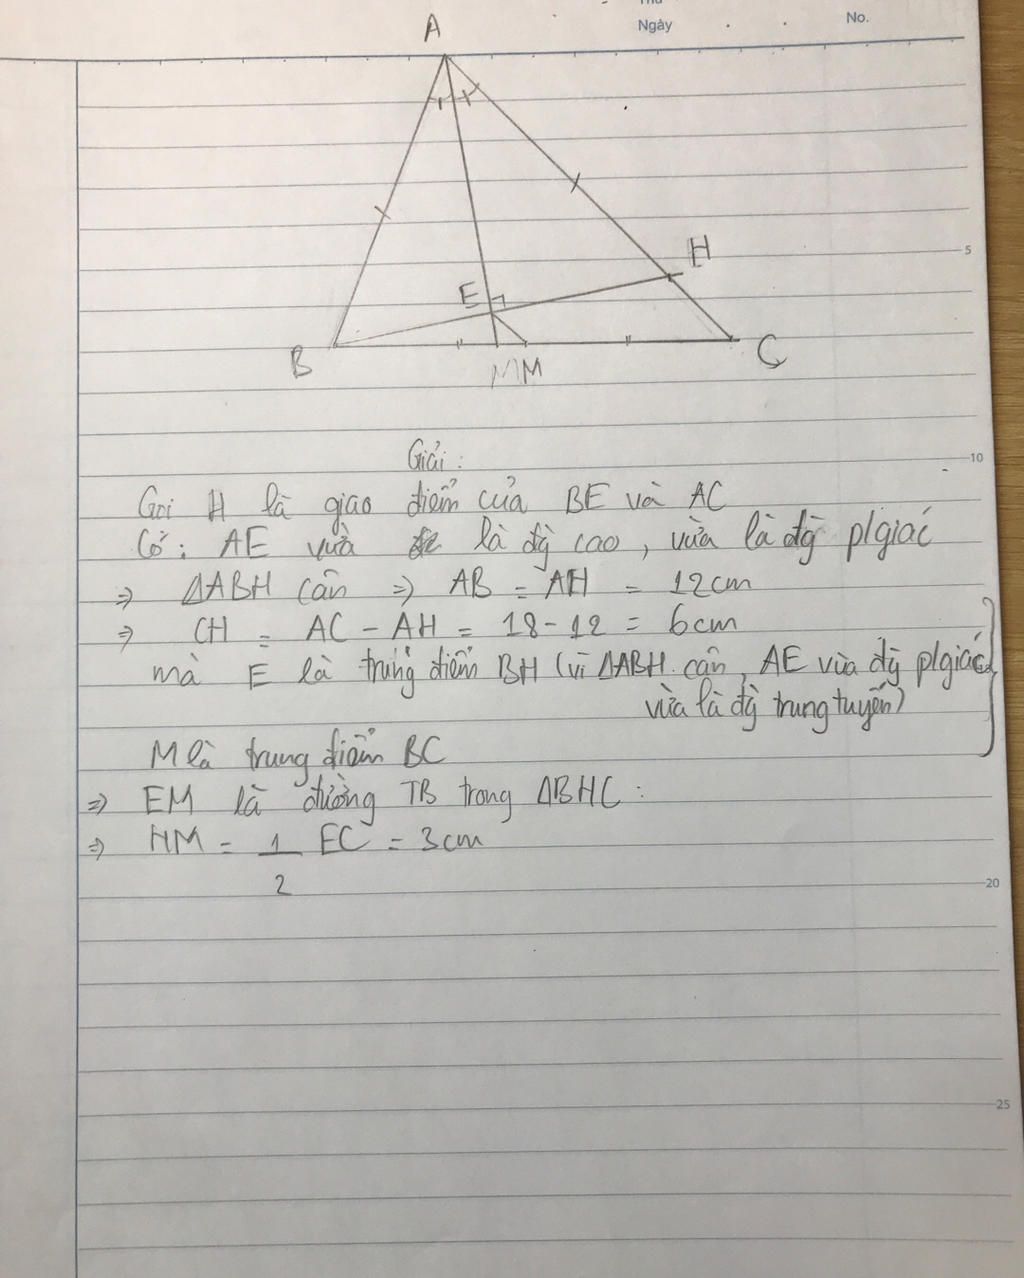 Thứ
Ngày
No.
A
H
5
E
B
C
M
10
Giải:
Gọi H là giao điểm của BE và AC
Có: AE vừa là đg cao, vừa là đg p/giác
⇒ ΔABH cân ⇒ AB = AH = 12cm
⇒ CH = AC - AH = 18 - 12 = 6cm
mà E là trung điểm BH (vì ΔABH cân, AE vừa đg p/giác
vừa là đg trung tuyến)
M là trung điểm BC
⇒ EM là đường TB trong ΔBHC:
⇒ HM = 1/2 EC = 3cm
20
25